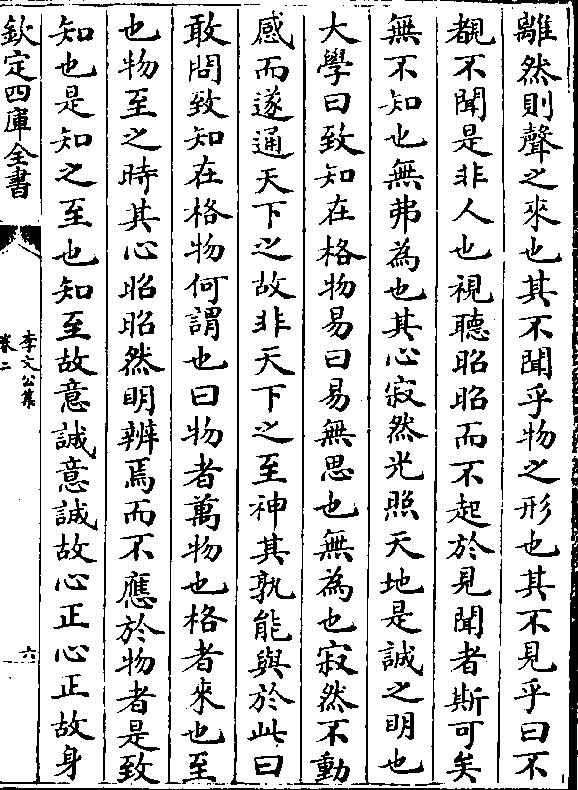 離然則聲之來也其不聞乎物之形也其不見乎曰不
覩不聞是非人也視聽昭昭而不起於見聞者斯可矣
無不知也無弗為也其心寂然光照天地是誠之明也
大學曰致知在格物易曰易無思也無為也寂然不動
感而遂通天下之故非天下之至神其孰能與於此曰
敢問致知在格物何謂也曰物者萬物也格者來也至
也物至之時其心昭昭然明辨焉而不應於物者是致
知也是知之至也知至故意誠意誠故心正心正故身
欽定四庫全書
李文公集
卷二
六